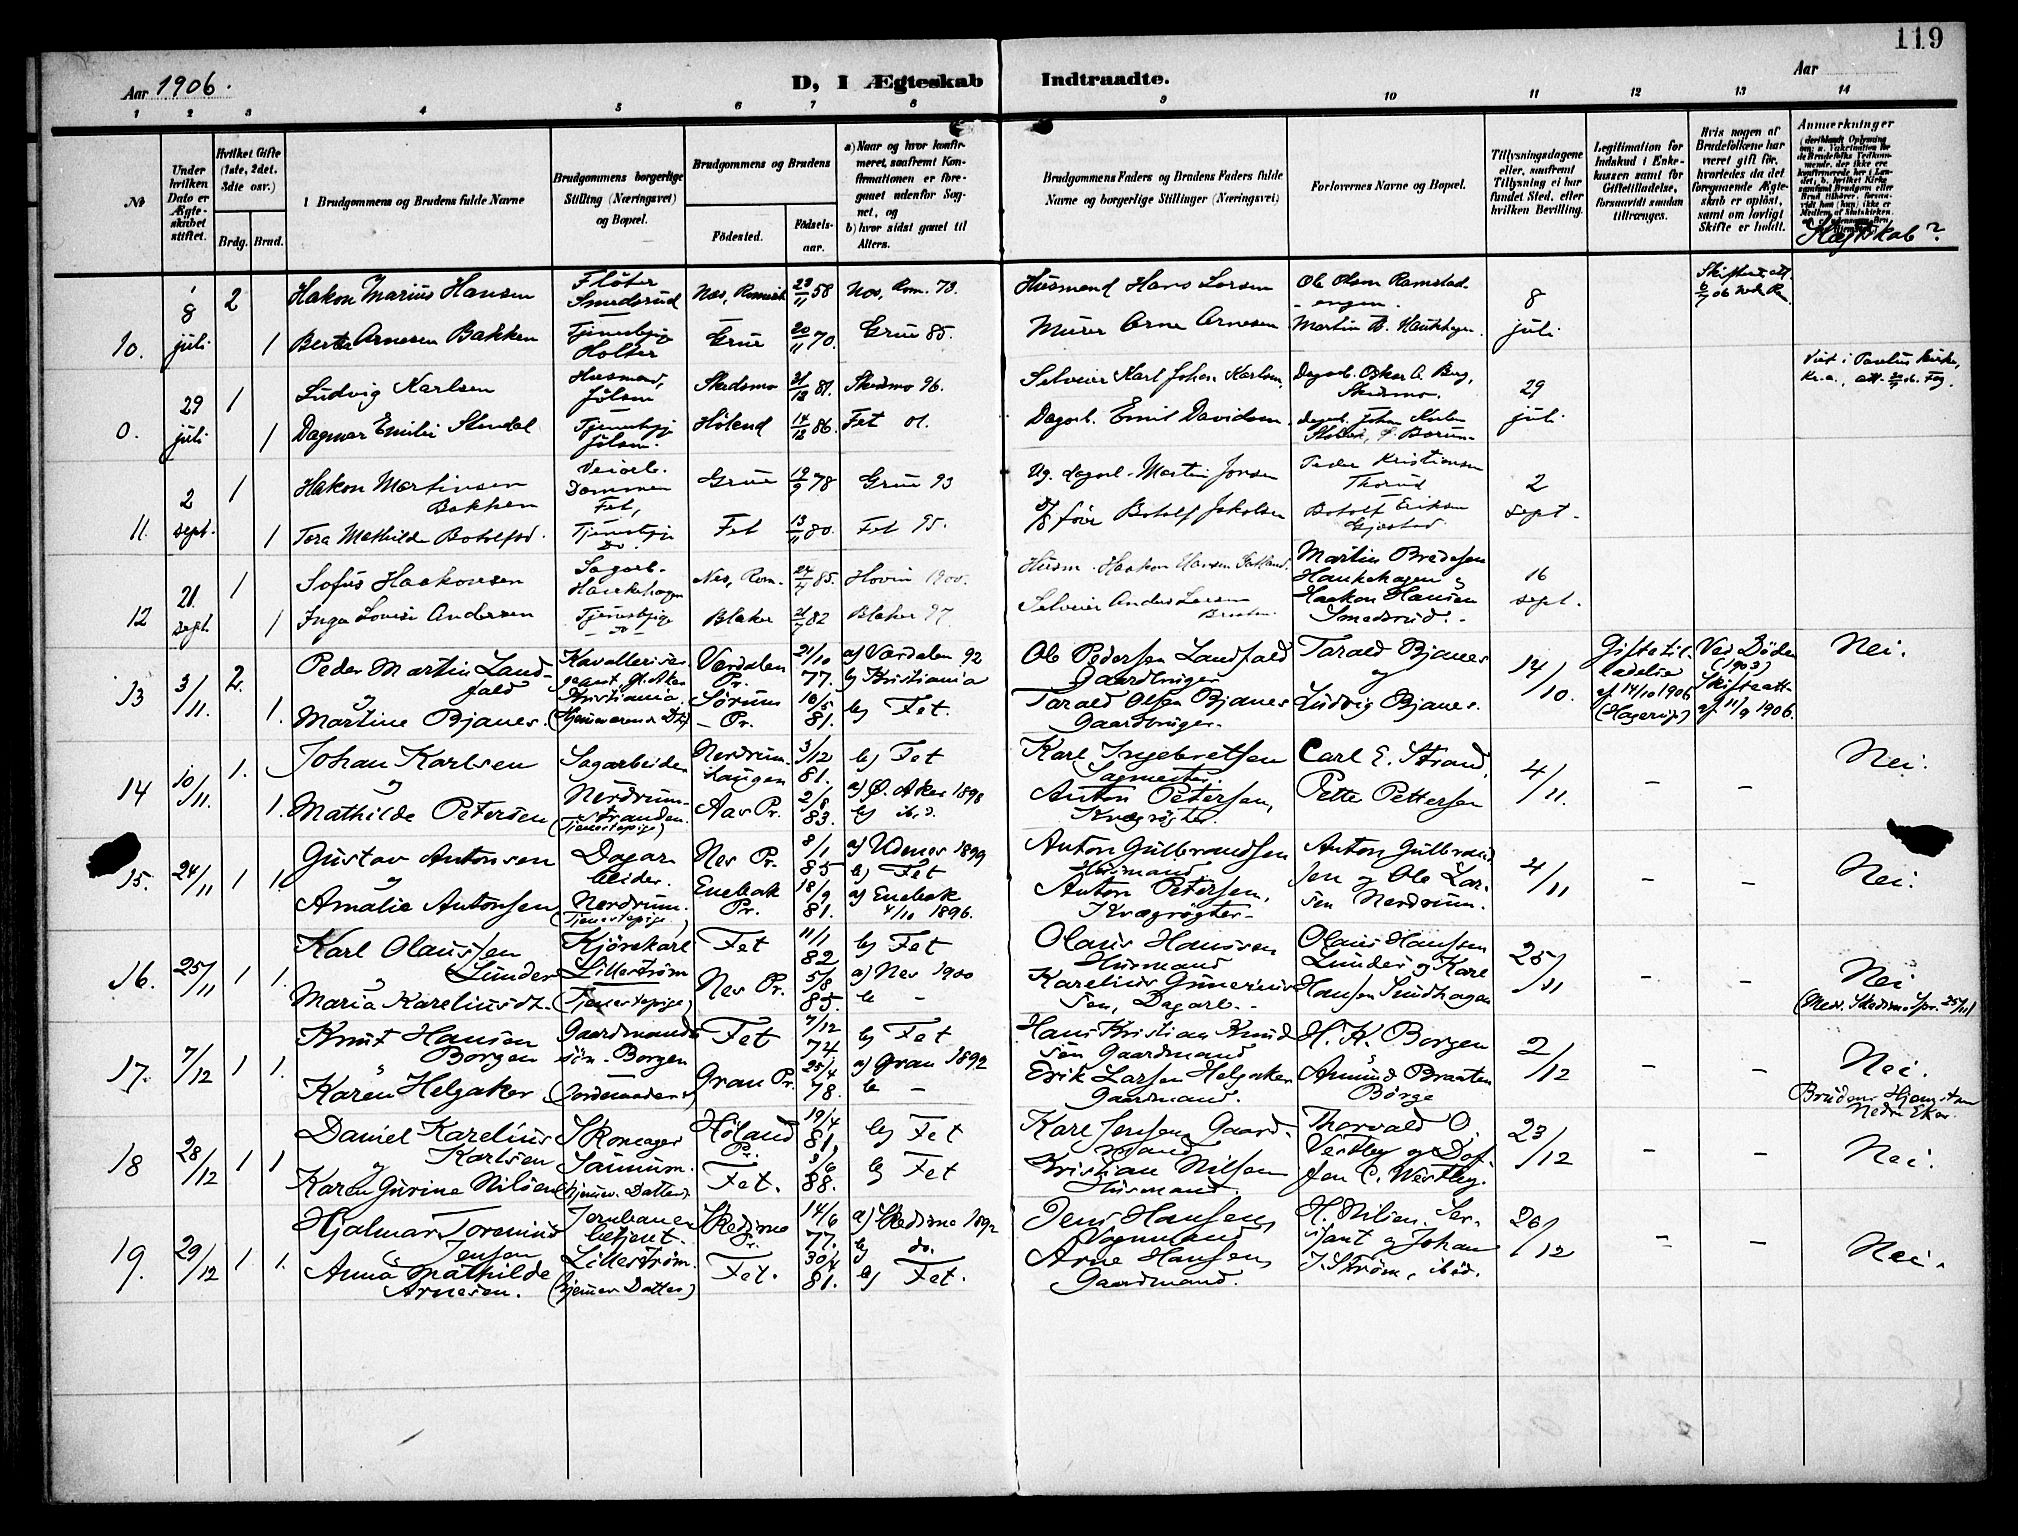 119
Aar 1906.
D, I Ægteskab Indtraadte.
Aar
1 2 3 4 5 6 7 8 9 10 11 12 13 14
No
Under hvilken Dato er Ægteskabet stiftet.
Hvilket Gifte (1ste, 2det, 3dte osv.)
Brdg. Brud.
Brudgommens og Brudens fulde Navne
Brudgommens borgerlige Stilling (Næringsvei) og Bopæl.
Brudgommens og Brudens
Födested. Födselsaar.
a) Naar og hvor konfirmeret, saafremt Konfirmationen er foregaaet udenfor Sognet, og
b) hvor sidst gaaet til Alters.
Brudgommens Faders og Brudens Faders fulde Navne og borgerlige Stillinger (Næringsvei)
Forlovernes Navne og Bopæl.
Tillysningsdagene eller, saafremt Tillysning ei har fundet Sted, efter hvilken Bevilling.
Legitimation for Indskud i Enkekassen samt for Giftetilladelse, forsaavidt saadan tiltrænges.
Hvis nogen af Brudefolkene har været gift før, hvorledes da det foregaaende Ægteskab er opløst, samt om lovligt Skifte er holdt.
Anmærkninger
Slegtskab?
10. 8 juli 2 Hakon Marius Hansen Fløter Smedsrud Næs, Romerik 58 Næs, Rom. 73. Husmand Hans Larsen Ole Olsen Ramstadengen. 8 juli
1 Berthe Arnesen Bakken Tjenestepige Holter Grue 20/11 70. Grue 85. Murer Arne Arnesen Martin B. Haukhagen.
0. 29 juli 1 Ludvig Karlsen Husmand, Jølsen Skedsmo 81. Skedsmo 96. Selveier Karl Johan Karlsen Dagarb. Oskar A. Berg, Skedsmo. 29 juli
Viet i Paulus kirke, Kr.a.,
1 Dagmar Emilie Stendal Tjenestepige Jølsen. Høland 14/12 86. Fet 01. Dagarb. Emil Davidsen
11. 2 sept. 1 Hakon Martinsen Bakken Veiarb. Dammen Fet, Grue 12/9 78 Grue 93 Ug. dagarb. Martin Jonsen Peder Kristiansen Thorud 2 sept.
1 Tora Mathilde Botolfsd. Tjenestepige Do. Fet 13/11 80. Fet 95. Botolf Jakobsen Botolf Eriksen Gjestad
12 21. sept. 1 Sofus Haakonsen Sagarb. Haukehagen Nes, Rom. 24/4 85. Hovin 1900. Husm. Haakon Hansen Martin Bredesen Haukehagen og 16 sept.
1 Inga Lovise Andersen Tjenestepige do Blaker 82 Blaker 97. Selveier Anders Larsen Braaten. Haakon Hansen Smedsrud.
13 3/11. 2. Peder Martin Landfald Kavallerisergeant Gl. Aker Kristiania Værdalen Pr. 21/10 77. a) Værdalen 92 b) Kristiania Ole Pedersen Landfald Gaardbruger Tarald Bjanes og 14/10. Giftetilladelse af 14/10 1906 Ved Døden (1903) Skifteatt. af 11/9 1906. Nei.
og 1. Martine Bjanes. (hjemmeværende Dt.) Sørum Pr. 10/5 81. b) Fet. Tarald Olsen Bjanes Gaardbruger. Ludvig Bjanes.
14 10/11. 1. Johan Karlsen Sagarbeider Nerdrumhaugen 3/12 81. b) Fet Karl Ingebretsen Sagmester. Carl E. Strand. 4/11. – – Nei.
og 1. Mathilde Petersen Nerdrumstranden. (Tjenestepige) Aas Pr. 2/8 83. a) Ø. Aker 1898 b) ibid. Anton Petersen, Kvægrøgter. Pette Pettersen
15. 24/11 1 1. Gustav Antonsen Dagarbeider. Nes Pr. 8/1 85 a) Udenes 1899 b) Fet Anton Gulbrandsen Husmand. Anton Gulbrandsen og Ole Larsen Nerdrum. 4/11 – – Nei.
og Amalie Antonsen Nerdrum. (Tjenestepige) Enebak Pr. 18/9 81. a) Enebak 4/10 1896. Anton Petersen, Kvægrøgter.
16. 25/11 1 1. Karl Olaussen Lunder Kjørekarl Lillestrøm Fet 11/1 82 b) Fet Olaus Hanssen Husmand Olaus Hanssen Lunder og Karl Hansen Sundhagen 25/11 – – Nei
og Maria Kareliusdt. (Tjenestepige) Nes Pr. 5/8 85. a) Nes 1900 b – Karelius Gunerius­sen, Dagarb. (Med. Skedsmo Spr. 25/11)
17. 7/12 1 1. Knut Hansen Borgen Gaardmandssøn. Borgen Fet 7/12 74 b) Fet Hans Kristian Knudsen Gaardmand H. K. Borgen 2/12 – – Nei.
Karen Helgaker Gran Pr. 25/4 78. a) Gran 1892 b – Erik Larsen Helgaker Gaardmand. Amund Braaten Børge Brudens Hjemst
18 28/12 1 1 Daniel Karelius Karlsen Skomager Saunum. Høland Pr. 19/4 81. b) Fet Karl Jensen Gaardmand Thorvald O. Vestby og Dof­fen C. Westby. 23/12 – – Nei.
og Karen Gurine Nilsen (hjemv. Datter) Fet. 88. b) Fet Kristian Nilsen Husmand.
19. 29/12 1. 1. Hjalmar Toremius Jensen Jernbanebetjent. Lillestrøm. Skedsmo Pr. 14/6 77. a) Skedsmo 1892 b) do. Jens Hansen, Vognmand H. Nilsen, Sersjant og Johan J. Strøm, ibid. 26/12 – – Nei.
Anna Mathilde Arnesen. (hjemv. Datter) Fet. 30/4 81. b) Fet. Arne Hansen, Gaardmand.